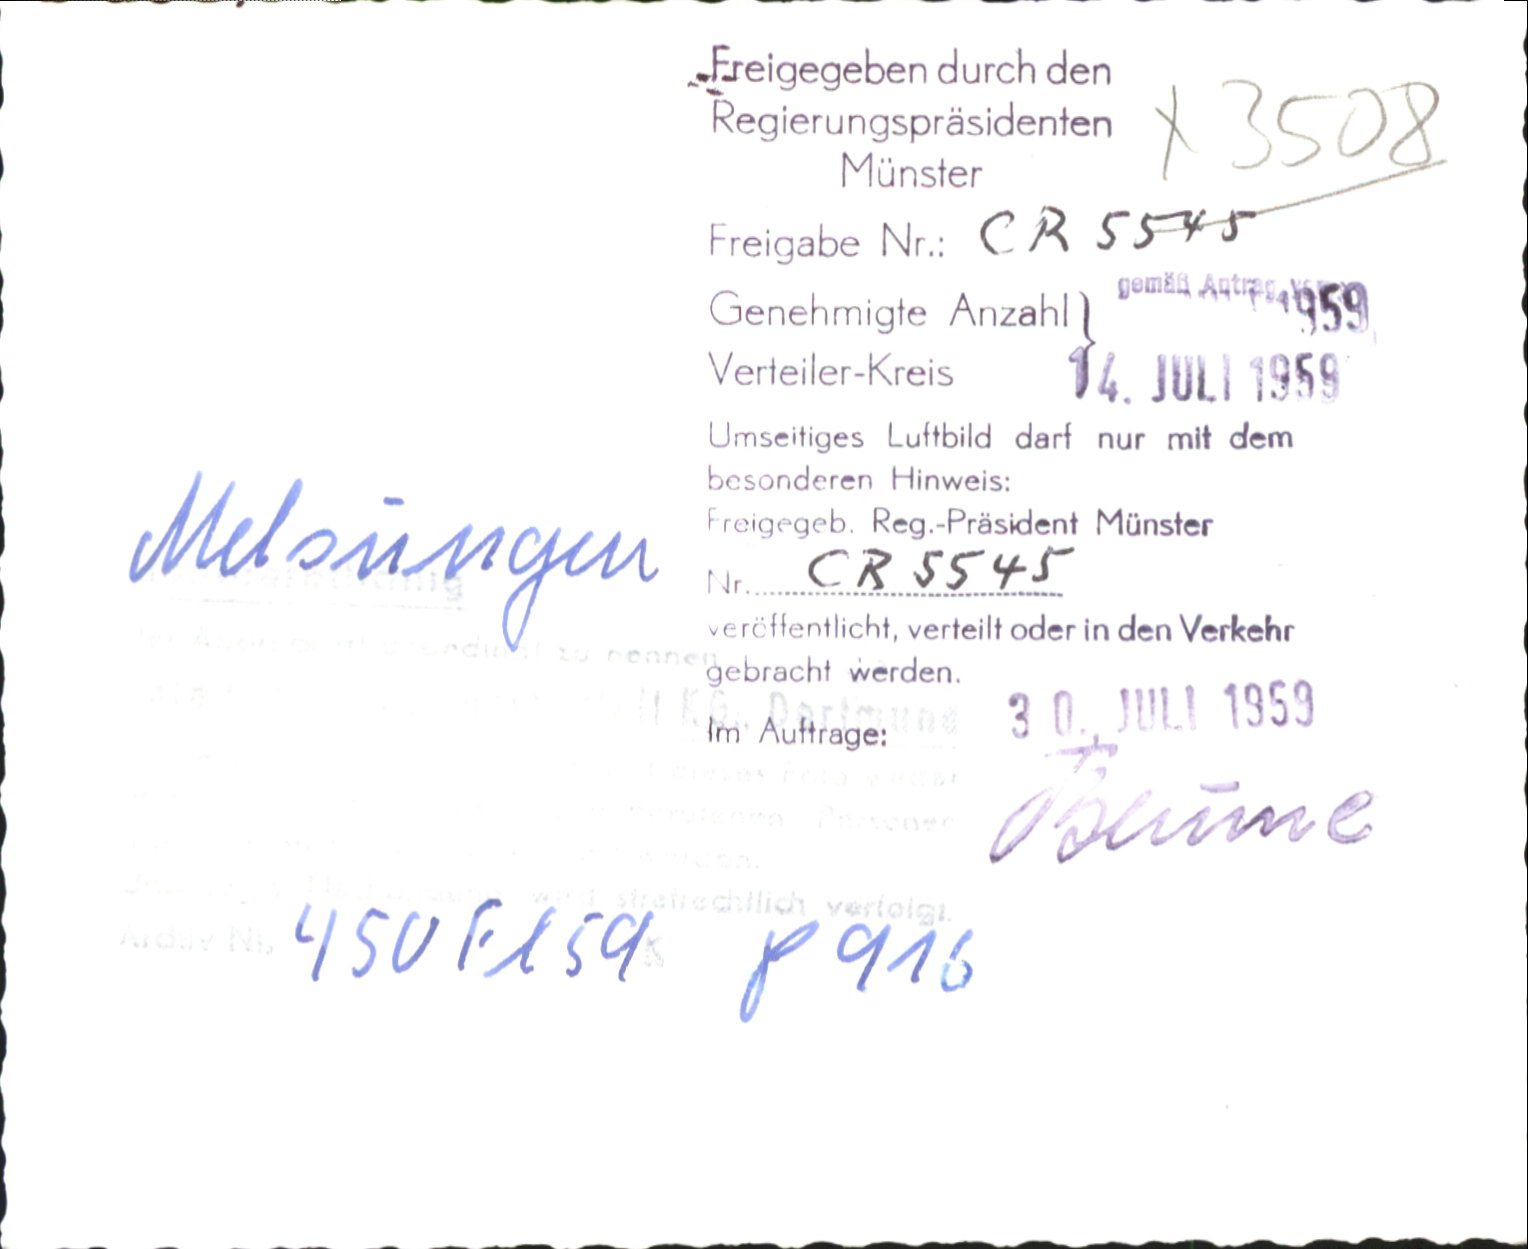 Freigegeben durch den
Regierungspräsidenten
Münster
x 3508
Freigabe Nr.: CR 5545
gemäß Antrag
Genehmigte Anzahl }
1959
Verteiler-Kreis
14. JULI 1959
Umseitiges Luftbild darf nur mit dem
besonderen Hinweis:
Freigegeb. Reg.-Präsident Münster
Nr. CR 5545
veröffentlicht, verteilt oder in den Verkehr
gebracht werden.
30. JULI 1959
Im Auftrage:
Blume
Melsungen
zu nennen
KG., Dortmund
dieses Foto weiter
Personen
wird strafrechtlich verfolgt.
Archiv Nr.
450 Fl 59 p 916